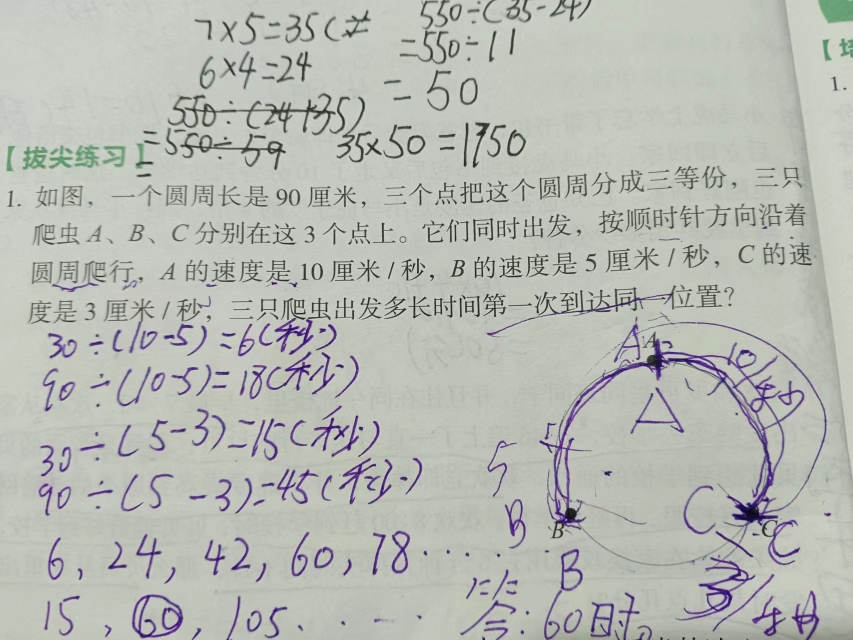 7×5=35(
550÷(35-24)
6×4=24
=550÷11
550÷(24+35)
=50
=550÷59
35×50=1750
=
【拔尖练习】
1. 如图，一个圆周长是 90 厘米，三个点把这个圆周分成三等份，三只
爬虫 A、B、C 分别在这 3 个点上。它们同时出发，按顺时针方向沿着
圆周爬行，A 的速度是 10 厘米 / 秒，B 的速度是 5 厘米 / 秒，C 的速
度是 3 厘米 / 秒，三只爬虫出发多长时间第一次到达同一位置？
30÷(10-5)=6(秒)
90÷(10-5)=18(秒)
30÷(5-3)=15(秒)
90÷(5-3)=45(秒)
6, 24, 42, 60, 78…
15, 60, 105. …
答:60秒
A
A
A
10/秒
5
5
B
B
B
C
C
C
3/秒
【培
1.